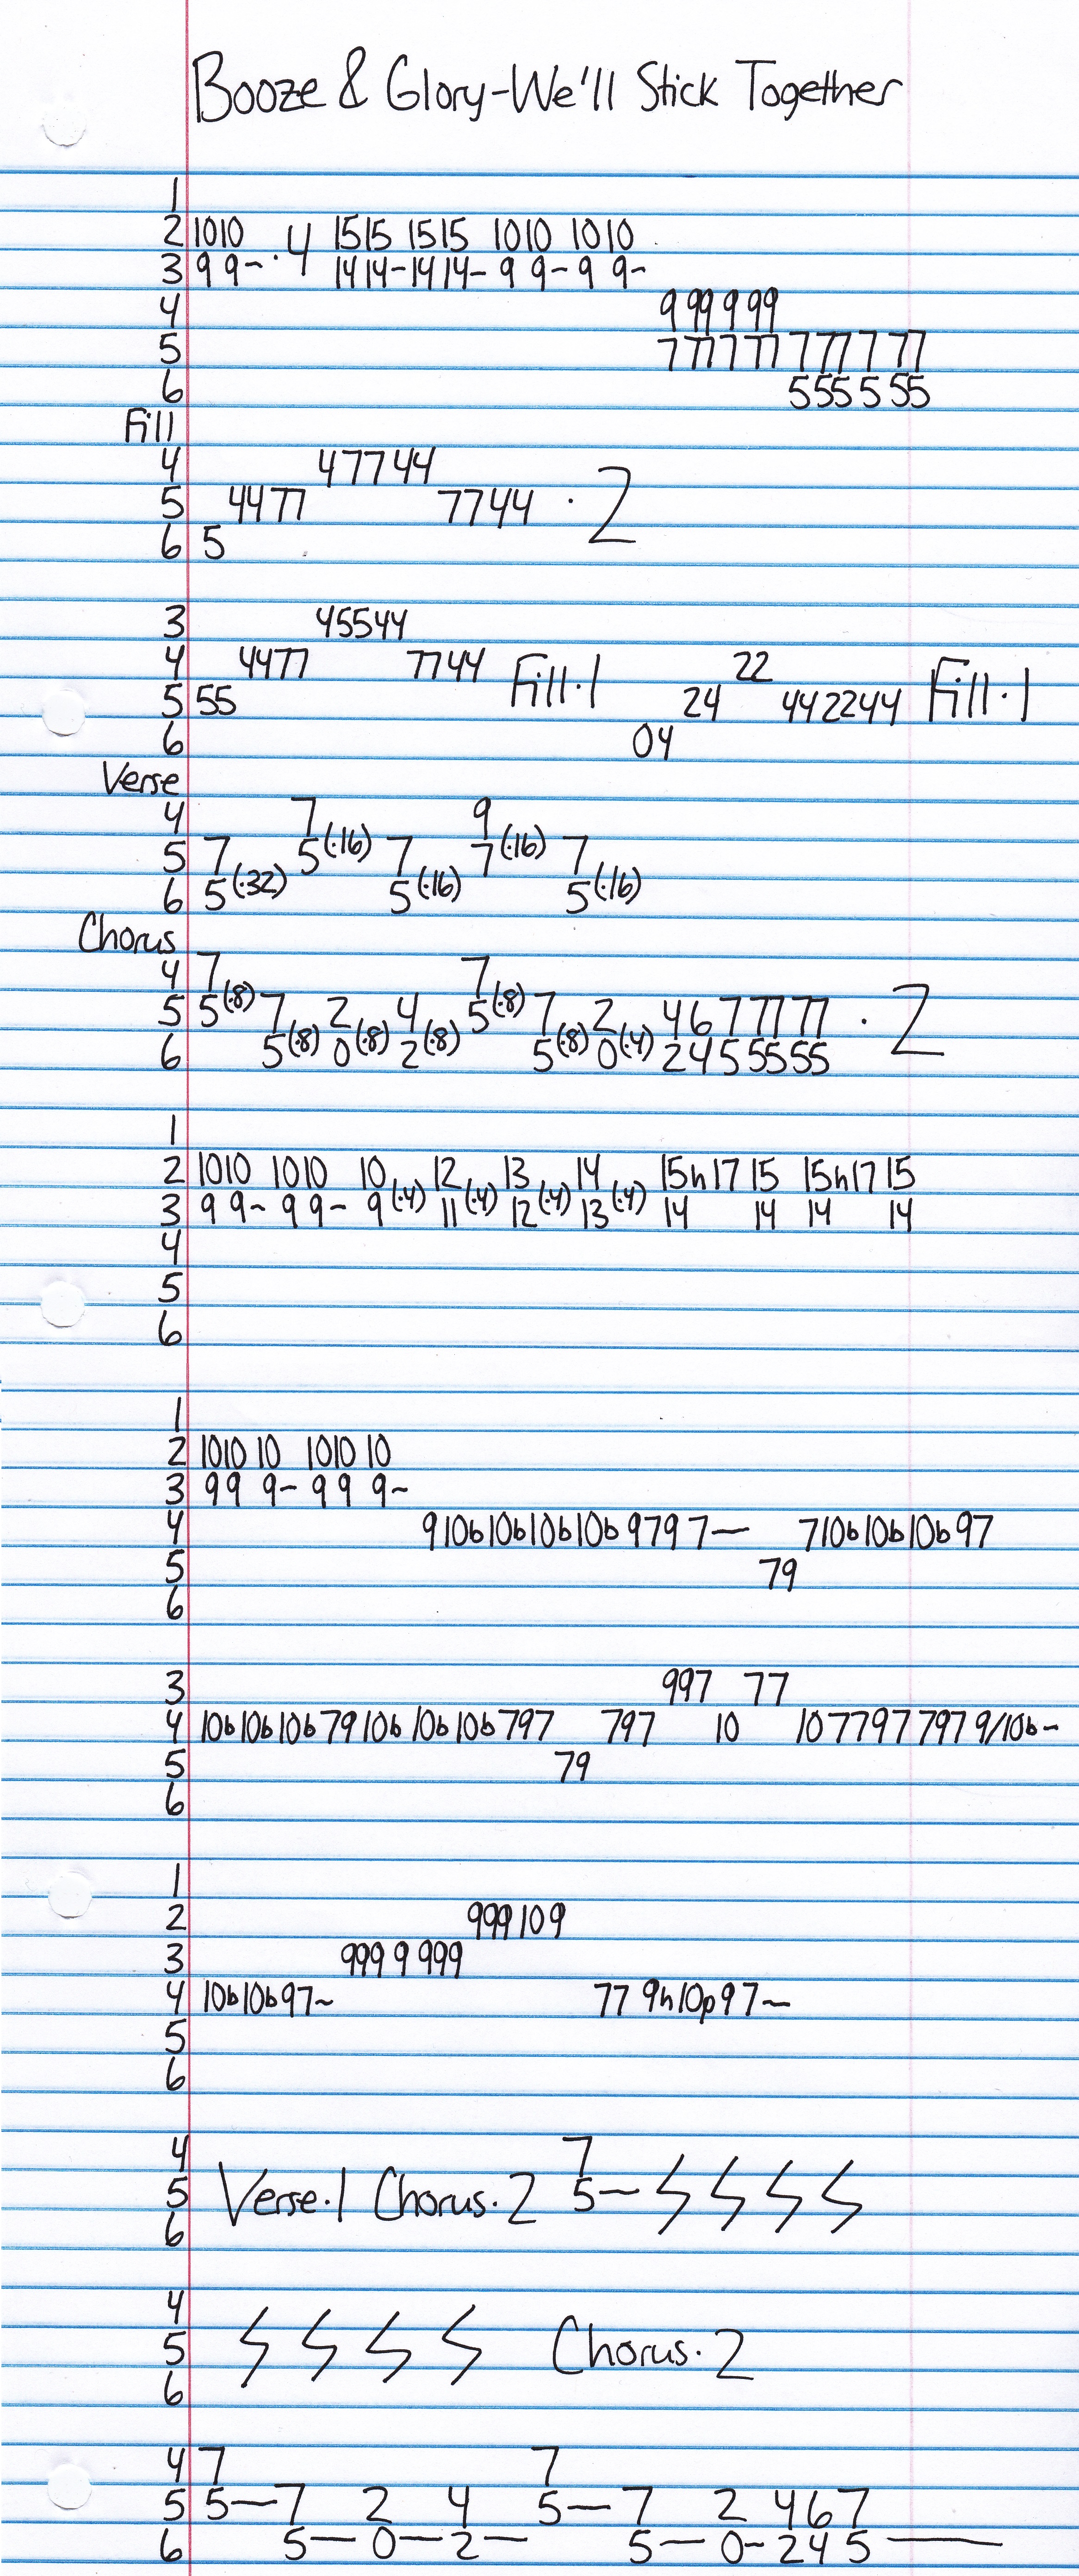 Booze & Glory-We'll Stick Together
1
2 1010 ·4 1515 1515 1010 1010
3 9 9~ 14 14~ 14 14~ 9 9~ 9 9~
4 9 99 9 99
5 7 77 7 77 7 77 7 77
6 5 55 5 55
Fill
4 4 77 44
5 44 77 77 44 ·2
6 5
3 4 55 44
4 44 77 77 44 Fill·1 22 Fill·1
5 55 24 44 22 44
6 04
Verse
4 7 9
5 7 5(·16) 7 7(·16) 7
6 5(·32) 5(·16) 5(·16)
Chorus
4 7 7
5 5(·8) 7 2 4 5(·8) 7 2 4 6 7 77 77 ·2
6 5(·8) 0(·8) 2(·8) 5(·8) 0(·4) 2 4 5 55 55
1
2 1010 1010 10 12 13 14 15h17 15 15h17 15
3 9 9~ 9 9~ 9(·4) 11(·4) 12(·4) 13(·4) 14 14 14 14
4
5
6
1
2 1010 10 1010 10
3 99 9~ 99 9~
4 9 10b 10b 10b 10b 9 7 9 7— 7 10b 10b 10b 9 7
5 79
6
3 997 77
4 10b 10b 10b 7 9 10b 10b 10b 7 9 7 797 10 10 7 7 9 7 7 9 7 9/10b~
5 79
6
1
2 999 10 9
3 999 9 999
4 10b 10b 9 7~ 77 9h10p9 7~
5
6
4 7
5 Verse·1 Chorus·2 5—
6
4
5 Chorus·2
6
4 7 7
5 5— 7 2 4 5— 7 2 4 6 7
6 5— 0— 2— 5— 0~ 2 4 5 —